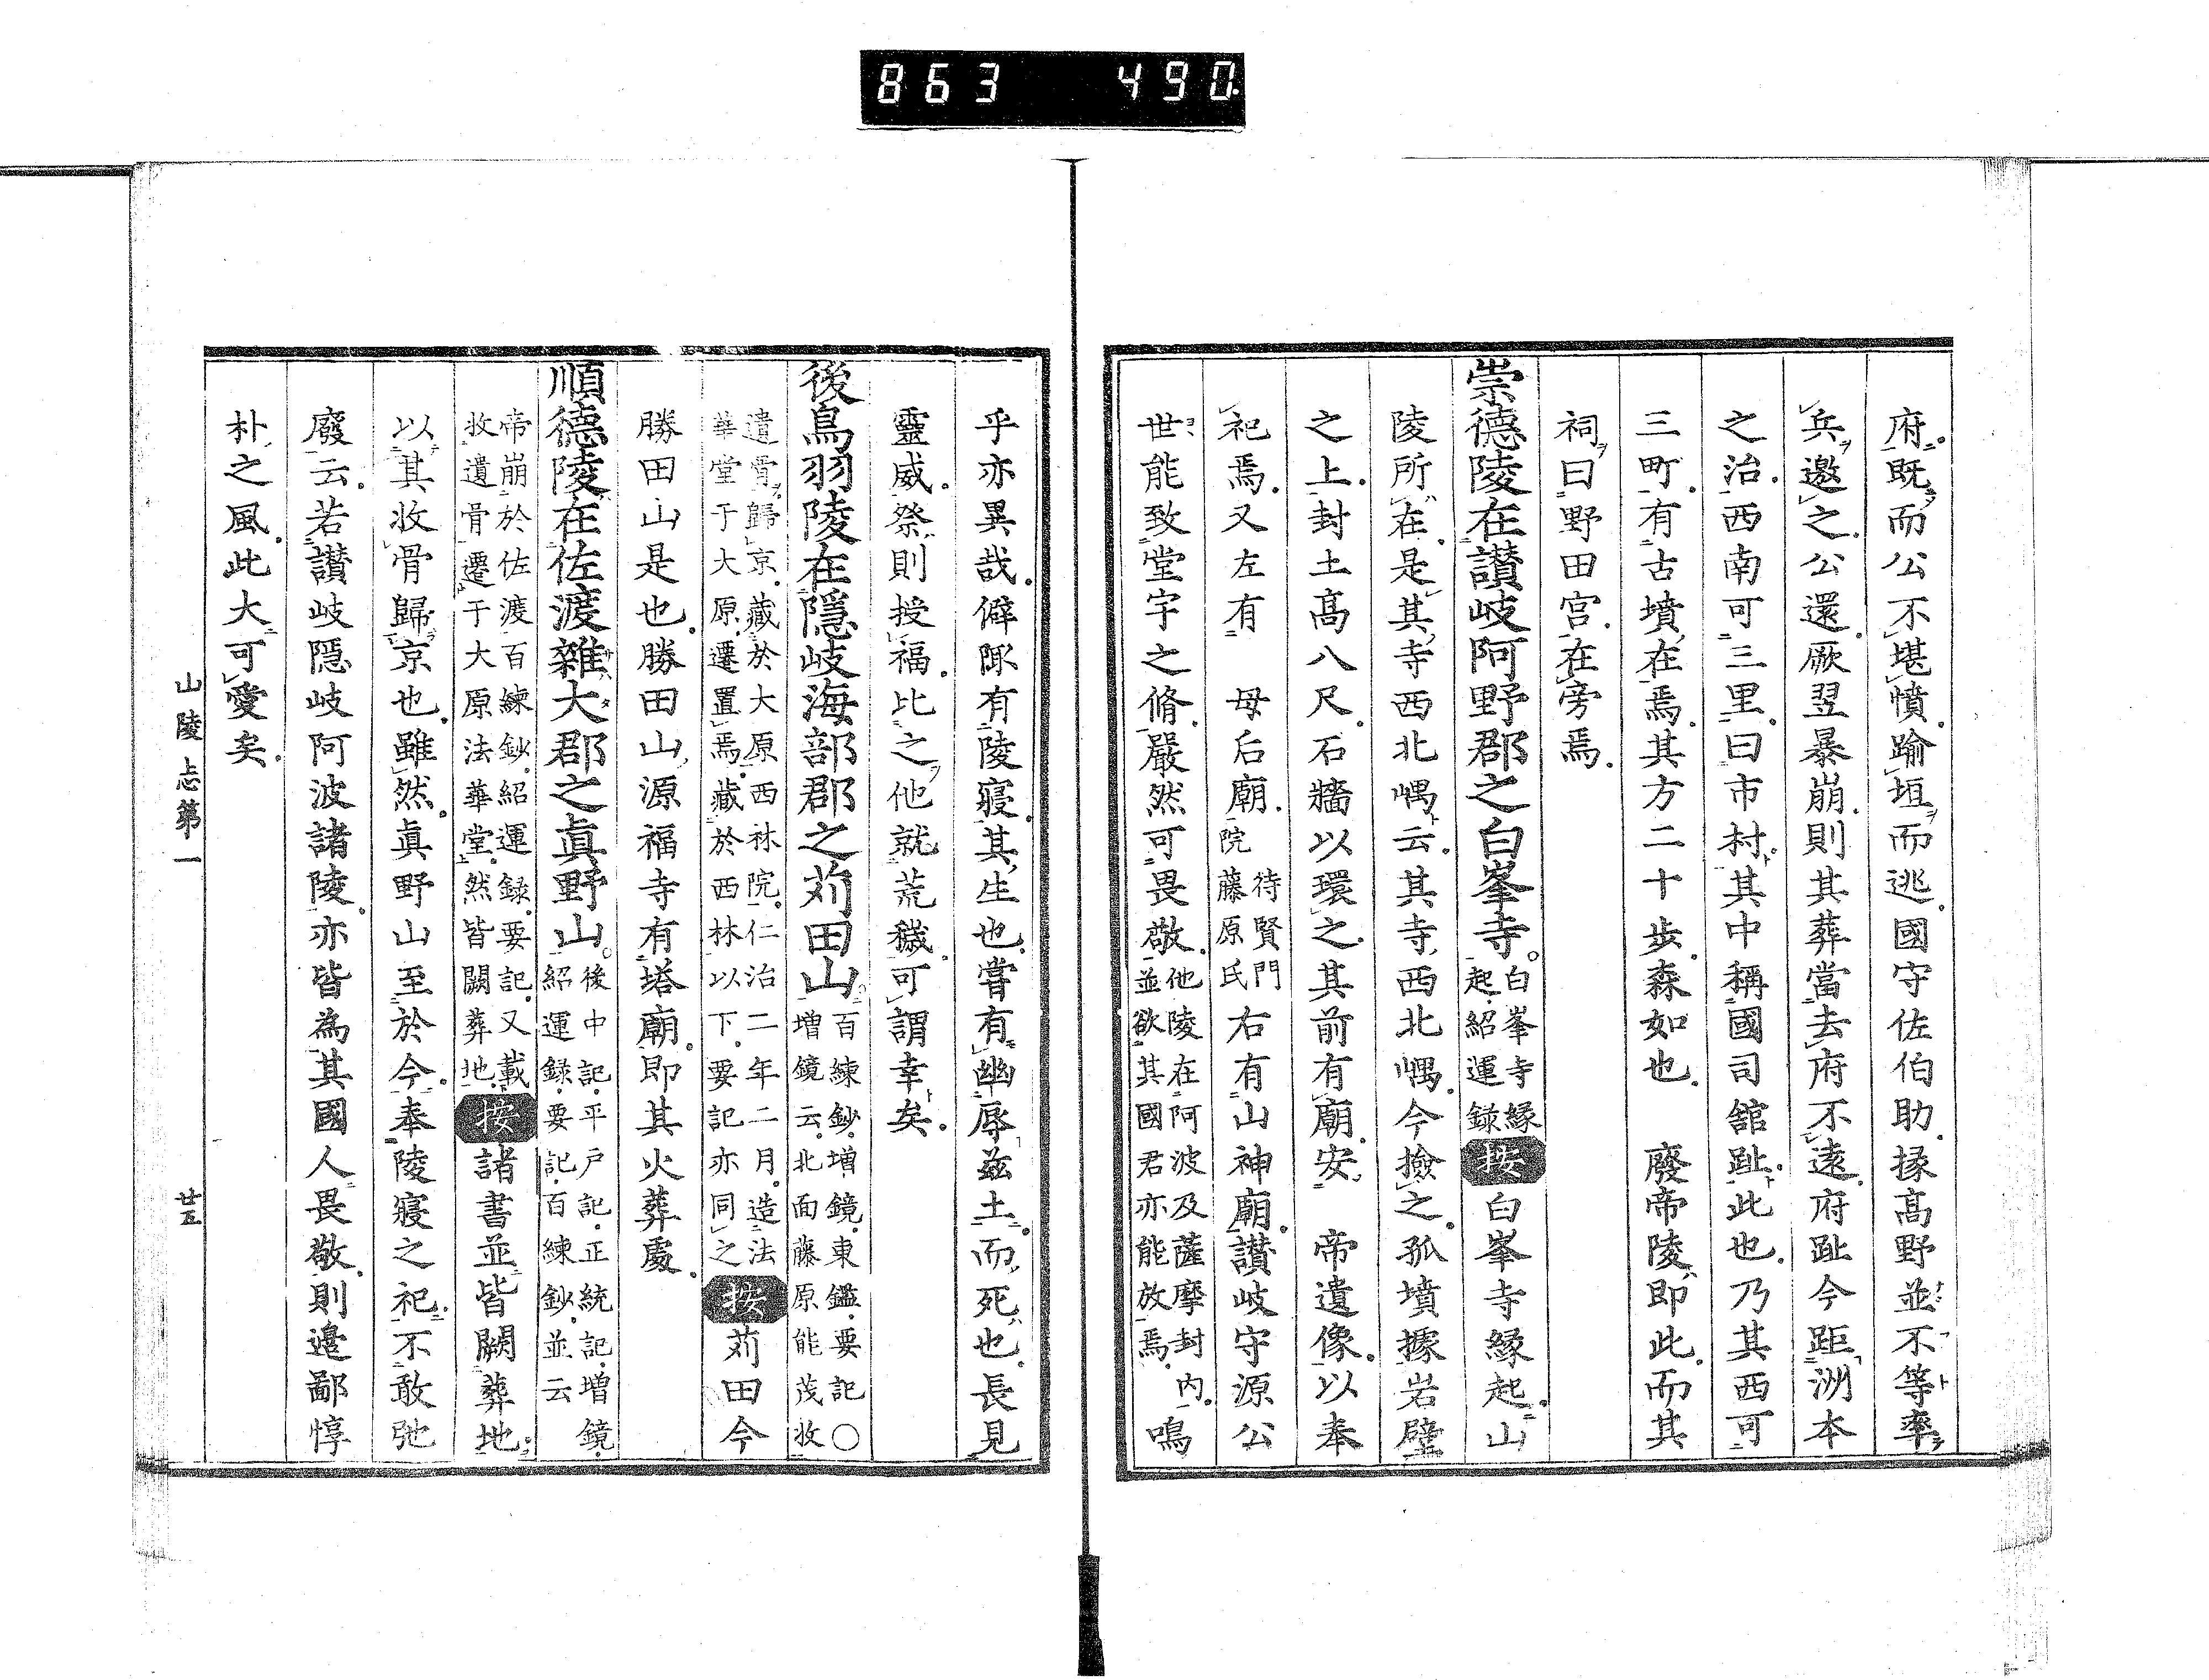 863 490.
府既而公不堪憤踰垣而逃國守佐伯助掾高野並不等率
兵邀之公還厥翌暴崩則其葬當去府不遠府趾今距洲本
之治西南可三里曰市村其中稱國司舘趾此也乃其西可
三町有古墳在焉其方二十步森如也 廢帝陵即此而其
祠曰野田宮在旁焉
崇德陵在讃岐阿野郡之白峯寺白峯寺緣起紹運錄按白峯寺緣起山
陵所在是其寺西北嵎云其寺西北嵎今撿之孤墳據岩壁
之上封土高八尺石牆以環之其前有廟安 帝遺像以奉
祀焉又左有 母后廟待賢門院藤原氏右有山神廟讃岐守源公
世能致堂宇之脩嚴然可畏敬他陵在阿波及薩摩封内並欲其國君亦能放焉鳴
乎亦異哉僻陬有陵寢其生也嘗有幽辱茲土而死也長見
靈威祭則授福比之他就荒穢可謂幸矣
後鳥羽陵在隱岐海部郡之苅田山百練鈔增鏡東鑑要記○增鏡云北面藤原能茂收
遺骨歸京藏於大原西林院仁治二年二月造法華堂于大原遷置焉藏於西林以下要記亦同之按苅田今
勝田山是也勝田山源福寺有塔廟即其火葬處
順德陵在佐渡雜大郡之眞野山後中記平戸記正統記增鏡紹運錄要記百練鈔並云
帝崩於佐渡百練鈔紹運錄要記又載收遺骨遷于大原法華堂然皆闕葬地按諸書並皆闕葬地
以其收骨歸京也雖然眞野山至於今奉陵寢之祀不敢弛
廢云若讃岐隱岐阿波諸陵亦皆為其國人畏敬則邊鄙惇
朴之風此大可愛矣
山陵志第一 廿五